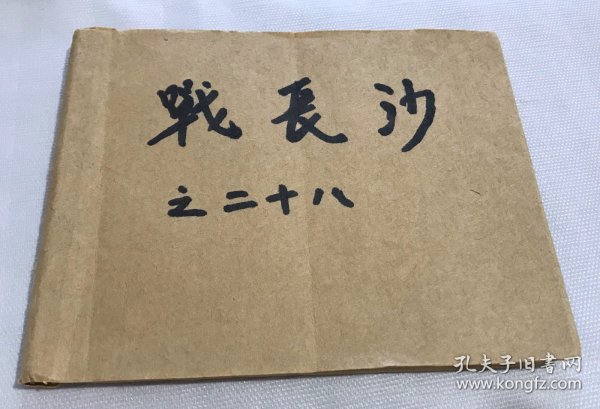 戰長沙
之二十八
孔夫子旧書网
www.kongfz.com